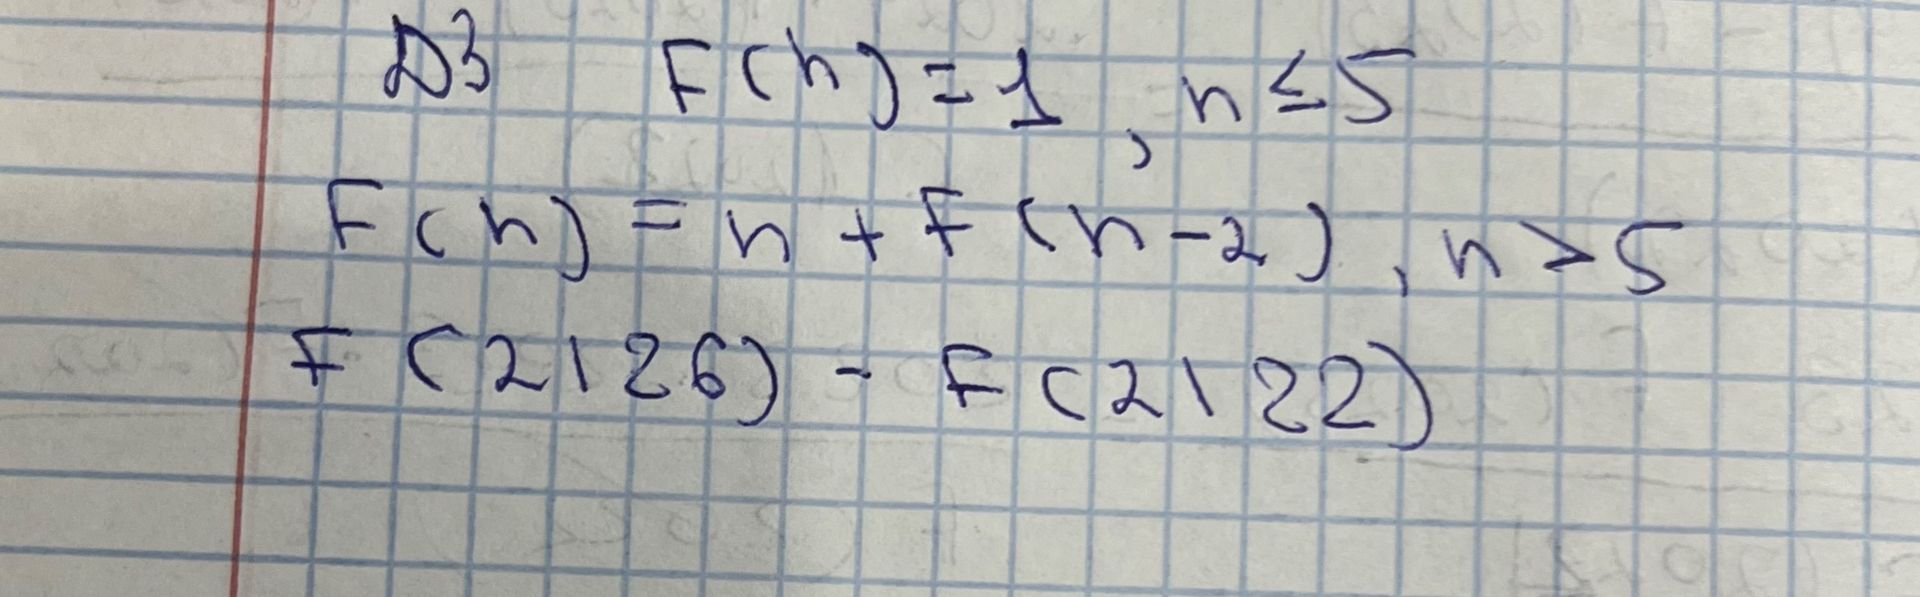 ДЗ F(n)=1, n≤5
F(n)=n+F(n-2), n>5
F(2126)-F(2122)